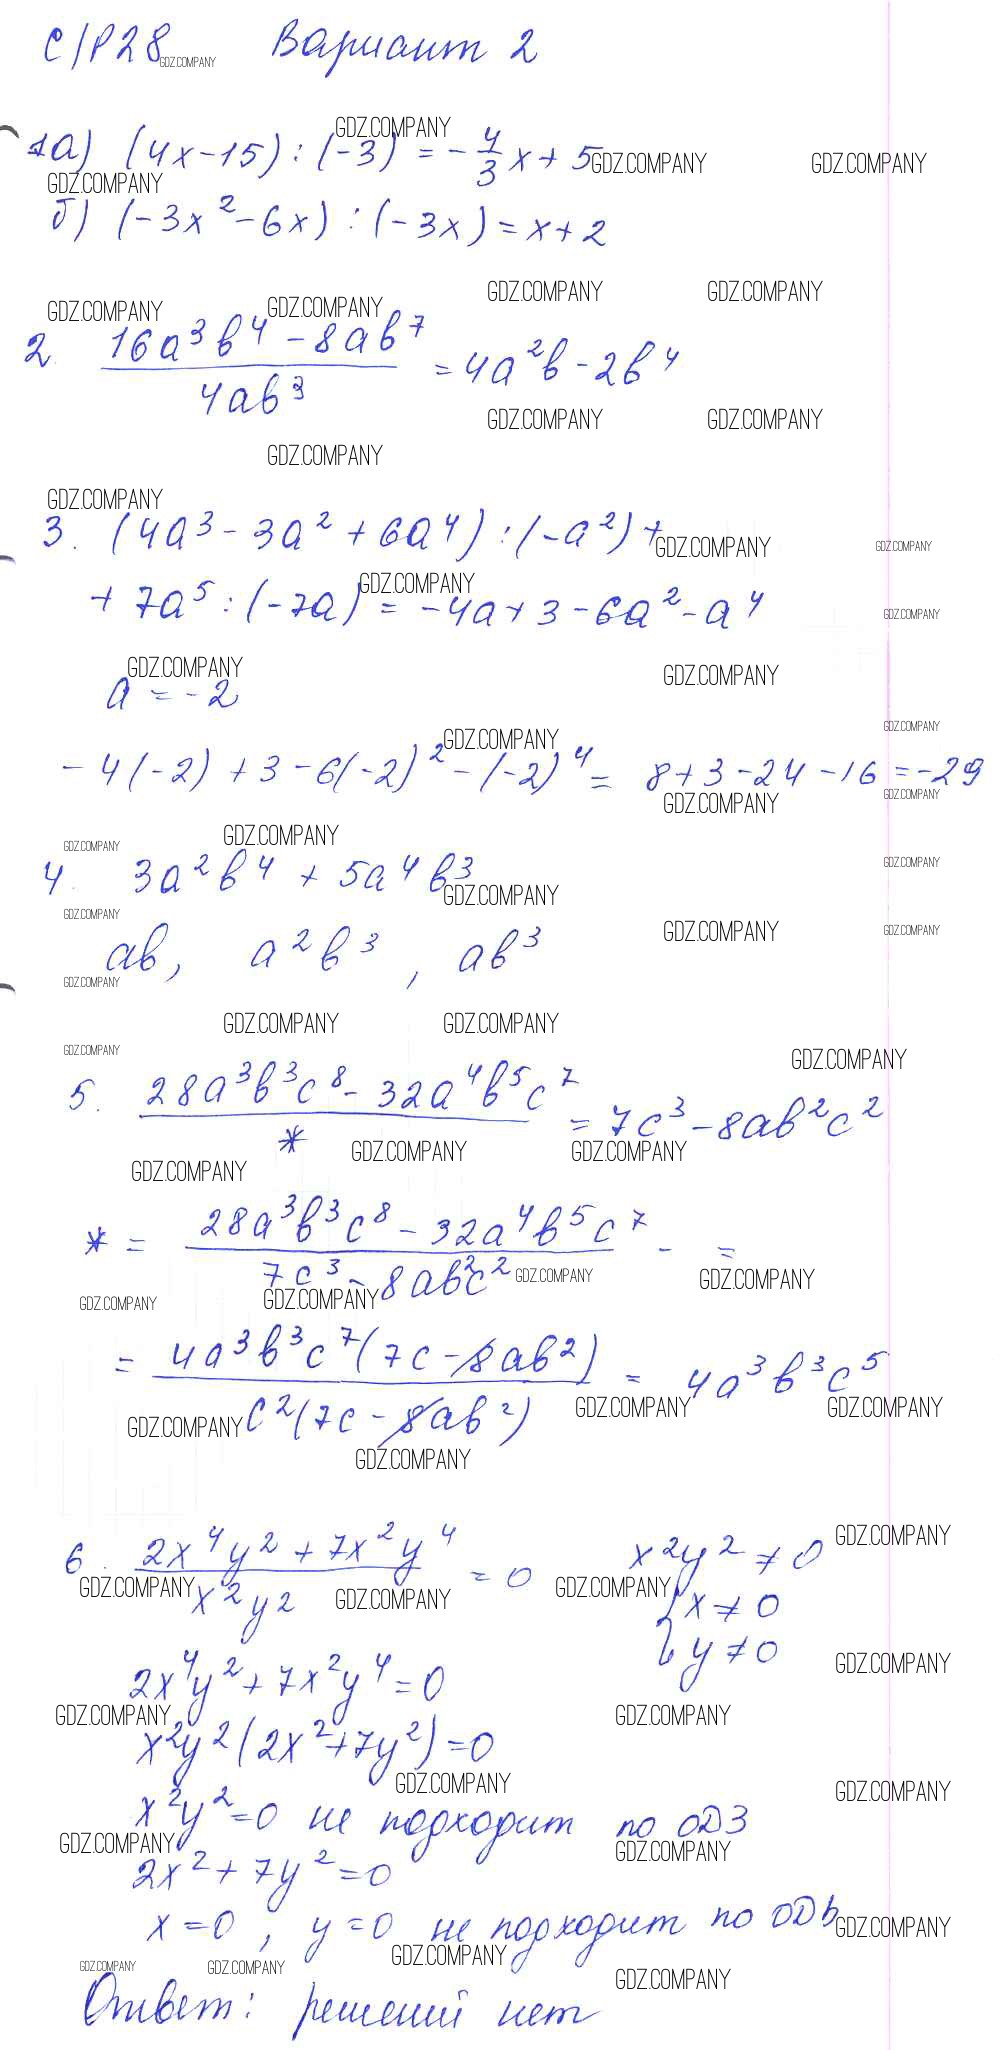 С/Р28 Вариант 2
1а) (4x-15):(-3) = -4/3x+5
б) (-3x²-6x):(-3x)=x+2
2. 16a³b⁴-8ab⁷/4ab³ =4a²b-2b⁴
3. (4a³-3a²+6a⁴):(-a²)+
+7a⁵:(-7a)=-4a+3-6a²-a⁴
a=-2
-4(-2)+3-6(-2)²-(-2)⁴= 8+3-24-16=-29
4. 3a²b⁴+5a⁴b³
ab, a²b³, ab³
5. 28a³b³c⁸-32a⁴b⁵c⁷/* =7c³-8ab²c²
*= 28a³b³c⁸-32a⁴b⁵c⁷/7c³-8ab²c² - =
= 4a³b³c⁷(7c-8ab²)/c²(7c-8ab²) = 4a³b³c⁵
6. 2x⁴y²+7x²y⁴/x²y² =0 x²y²≠0
{x≠0
y≠0
2x⁴y²+7x²y⁴=0
x²y²(2x²+7y²)=0
x²y²=0 не подходит по ОДЗ
2x²+7y²=0
x=0, y=0 не подходит по ОДЗ
Ответ: решений нет
GDZ.COMPANY